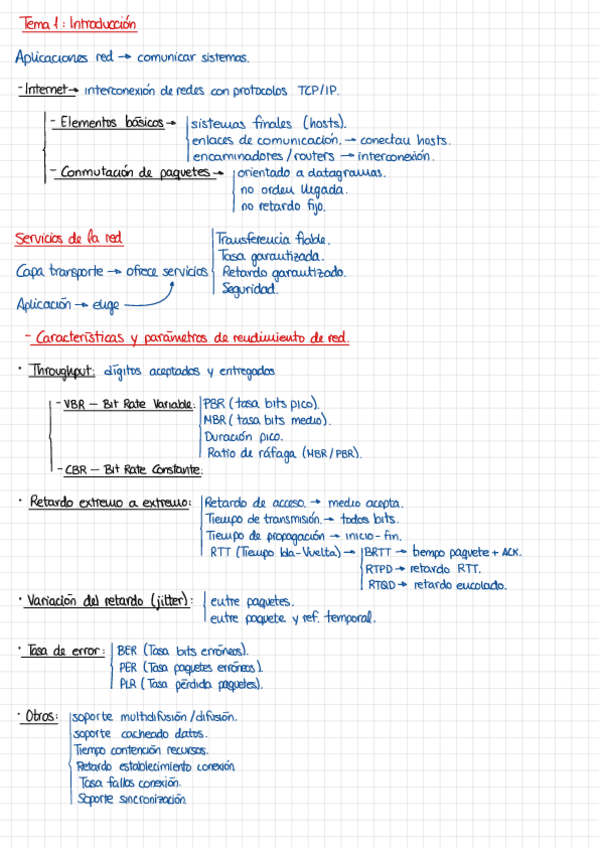 Tema 1: Introducción
Aplicaciones red → comunicar sistemas.
- Internet → interconexión de redes con protocolos TCP/IP.
- Elementos básicos → sistemas finales (hosts).
enlaces de comunicación. → conectan hosts.
encaminadores/routers → interconexión.
- Conmutación de paquetes → orientado a datagramas.
no orden llegada.
no retardo fijo.
Servicios de la red
Transferencia fiable.
Tasa garantizada.
Capa transporte → ofrece servicios Retardo garantizado.
Seguridad.
Aplicación → elige
- Características y parámetros de rendimiento de red.
· Throughput: dígitos aceptados y entregados
- VBR – Bit Rate Variable: PBR (tasa bits pico).
MBR (tasa bits medio).
Duración pico.
Ratio de ráfaga (MBR/PBR).
- CBR – Bit Rate Constante:
· Retardo extremo a extremo: Retardo de acceso. → medio acepta.
Tiempo de transmisión. → todos bits.
Tiempo de propagación → inicio-fin.
RTT (Tiempo Ida-Vuelta) → BRTT → tiempo paquete + ACK.
RTPD → retardo RTT.
RTQD → retardo encolado.
· Variación del retardo (jitter): entre paquetes.
entre paquete y ref. temporal.
· Tasa de error: BER (Tasa bits erróneos).
PER (Tasa paquetes erróneos).
PLR (Tasa pérdida paquetes).
· Otros: soporte multidifusión/difusión.
soporte cacheado datos.
Tiempo contención recursos.
Retardo establecimiento conexión
Tasa fallos conexión.
Soporte sincronización